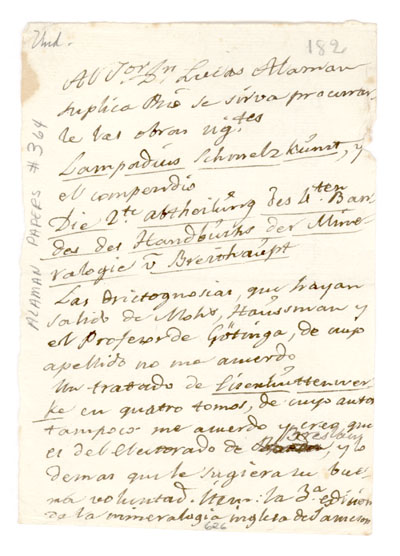 Und.
182
Al Sor. Dn. Lucas Alaman
suplica Rio se sirva procurar
le las obras sig.tes
Lampadius Schmelzkunst, y
el compendio
Die 2te abtheilung des 4ten Ban
des des Handbuchs der Mine
ralogie v Breithaupt
Las orictognosias, que hayan
salido de Mohs, Haussman y
el Profesor de Götinga, de cuyo
apellido no me acuerdo
Un tratado de Eisenhuttenwer
ke en quatro tomos, de cuyo autor
tampoco me acuerdo y creo que
es del Electorado de Breslau, y lo
demas que le sugiera su bue
na voluntad. Item: la 3.a edicion
de la mineralogia inglesa de Jameson
626
ALAMAN PAPERS # 364